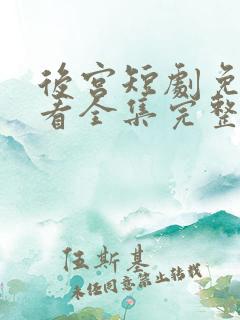 後宮短劇免
看全集完整
伍斯基
未经同意禁止转载